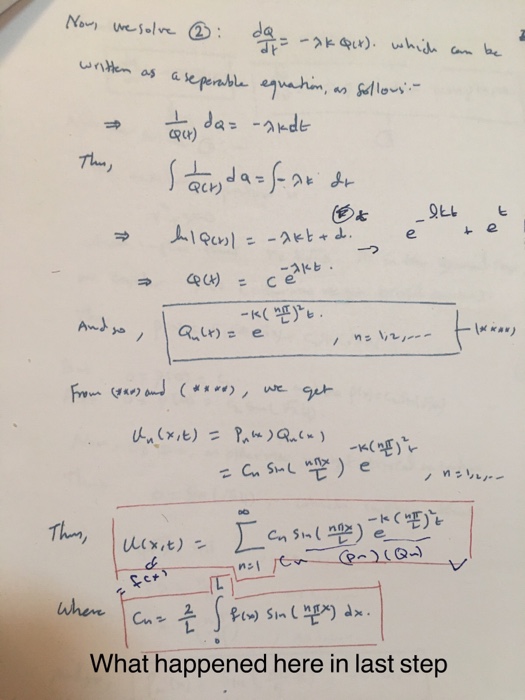 Now, we solve ②: dQ/dt = -λk Q(t). which can be
written as a seperable equation, as follows:-
⇒ 1/Q(t) dQ = -λkdt
Thus,
∫ 1/Q(t) dQ = ∫ -λk dt
⇒ ln|Q(t)| = -λkt + d. → e^-λkt + e^t
⇒ Q(t) = c e^-λkt.
And so, Qn(t) = e^-k(nπ/L)²t. , n = 1,2,---- (****)
From (***) and (****), we get
Un(x,t) = Pn(x) Qn(x)
= Cn Sin(nπx/L) e^-k(nπ/L)²t , n=1,2,--
Thus, U(x,t) = ∑ n=1 ∞ Cn Sin(nπx/L) e^-k(nπ/L)²t
(Pn) (Qn)
= f(x)
Where Cn = 2/L ∫ 0 L f(x) Sin(nπx/L) dx.
What happened here in last step